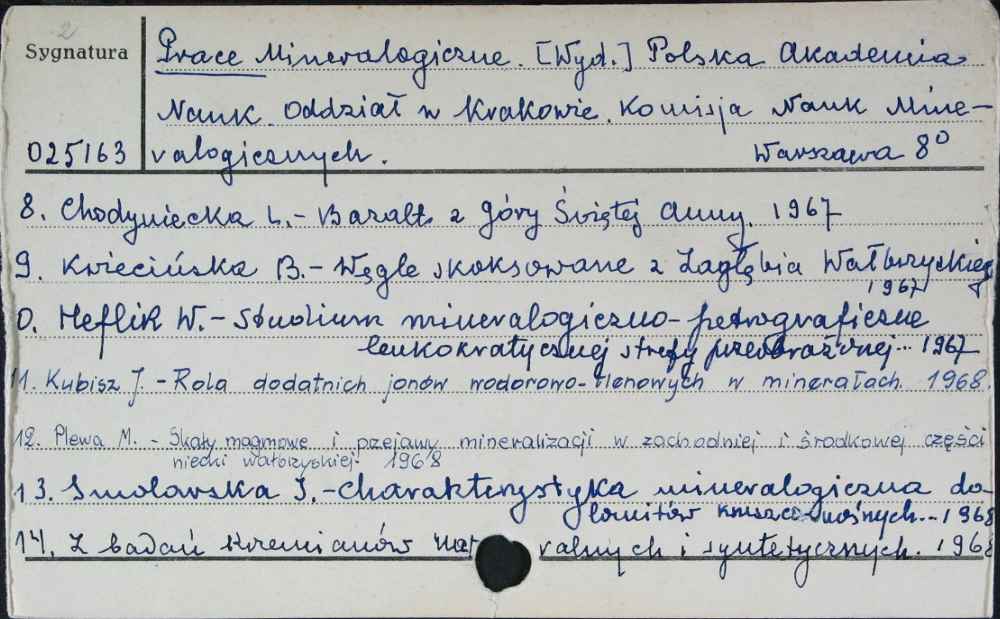 2
Sygnatura
Prace Mineralogiczne. [Wyd.] Polska Akademia
Nauk. Oddział w Krakowie. Komisja Nauk Mine-
025163 ralogicznych. Warszawa 8⁰
8. Chodyniecka L. - Bazalt z Góry Świętej Anny. 1967
9. Kwiecińska B. - Węgle skoksowane z Zagłębia Wałbrzyskieg
1967
0. Heflik W. - Studium mineralogiczno-petrograficzne
leukokratycznej strefy przeobrażonej... 1967
11. Kubisz J. - Rola dodatnich jonów wodorowo-tlenowych w minerałach. 1968.
12. Plewa M. - Skały magmowe i przejawy mineralizacji w zachodniej i środkowej części
niecki wałbrzyskiej. 1968
13. Smolarska I. - Charakterystyka mineralogiczna do-
lomitów kruszconośnych... 1968
14. Z badań krzemianów nat ralnych i syntetycznych. 1968